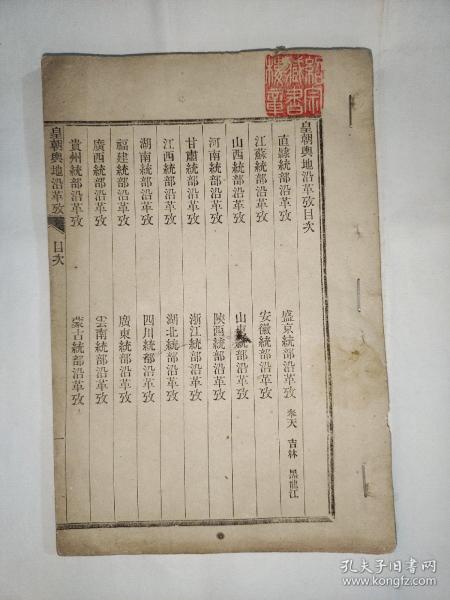 皇朝輿地沿革攷目次
直隸統部沿革攷 盛京統部沿革攷 奉天 吉林 黑龍江
江蘇統部沿革攷 安徽統部沿革攷
山西統部沿革攷 山東統部沿革攷
河南統部沿革攷 陝西統部沿革攷
甘肅統部沿革攷 浙江統部沿革攷
江西統部沿革攷 湖北統部沿革攷
湖南統部沿革攷 四川統部沿革攷
福建統部沿革攷 廣東統部沿革攷
廣西統部沿革攷 雲南統部沿革攷
貴州統部沿革攷 蒙古統部沿革攷
皇朝輿地沿革攷 目次
孔夫子旧书网
www.kongfz.com